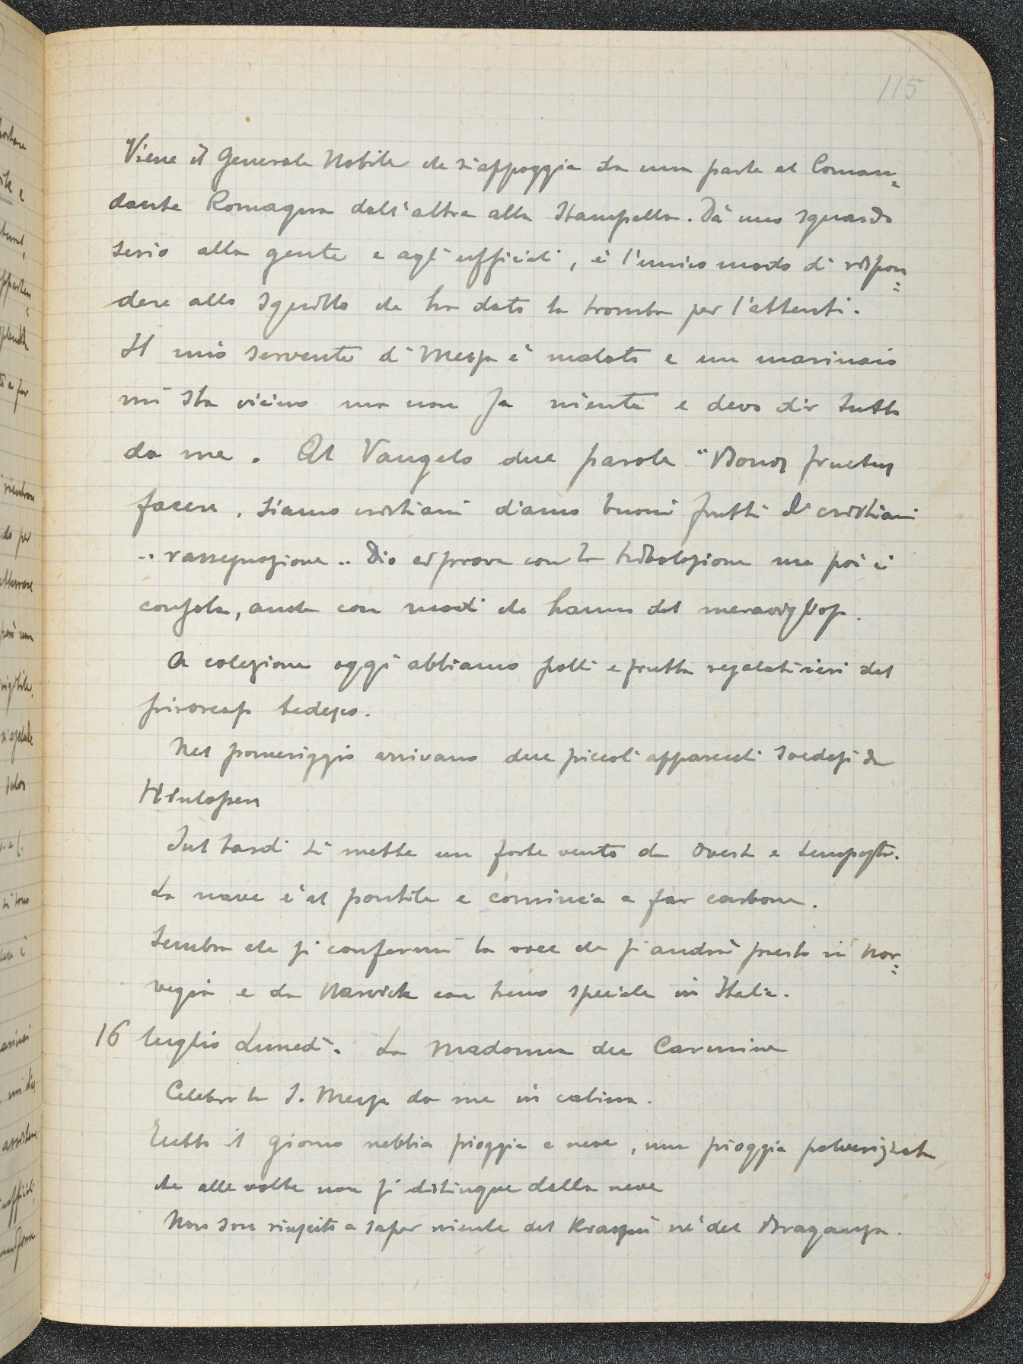 115
Viene il Generale Nobile che s'appoggia da una parte al Coman=
dante Romagna dall'altra alla Stampella. Dà uno sguardo
serio alla gente e agli ufficiali, è l'unico modo di rispon=
dere allo squillo che ha dato la tromba per l'attenti.
Il mio servente di Messa è malato e un marinaio
mi sta vicino ma non fa niente e devo dir tutto
da me. Al Vangelo due parole "Bonos fructus
facere. Siamo cristiani diamo buoni frutti di cristiani
.. rassegnazione .. Dio ci prova con la tribolazione ma poi ci
consola, anche con modi che hanno del meraviglioso.
A colazione oggi abbiamo polli e frutta regalati ieri dal
piroscafo tedesco.
Nel pomeriggio arrivano due piccoli apparecchi svedesi da
Hinlopen
Sul tardi si mette un forte vento da ovest e tempesta.
La nave è al pontile e comincia a far carbone.
Sembra che si confermi la voce che si andrà presto in Nor=
vegia e da Narvick con treno speciale in Italia.
16 luglio Lunedì. La Madonna del Carmine
Celebro la S. Messa da me in cabina.
Tutto il giorno nebbia pioggia e neve, una pioggia polverizzata
che alle volte non si distingue dalla neve
Non son riuscito a saper niente del Krassin nè del Braganza.